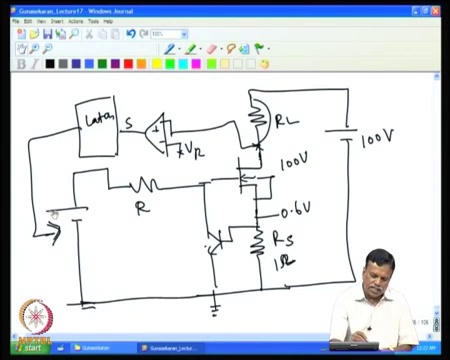 Gunasekaran_Lecture17 - Windows Journal
File Edit View Insert Actions Tools Help
100%
B I
Latch
S
+
VR
RL
100V
100V
R
0.6V
RS
1Ω
NPTEL
start
Gunasekaran
Gunasekaran_Lectur...